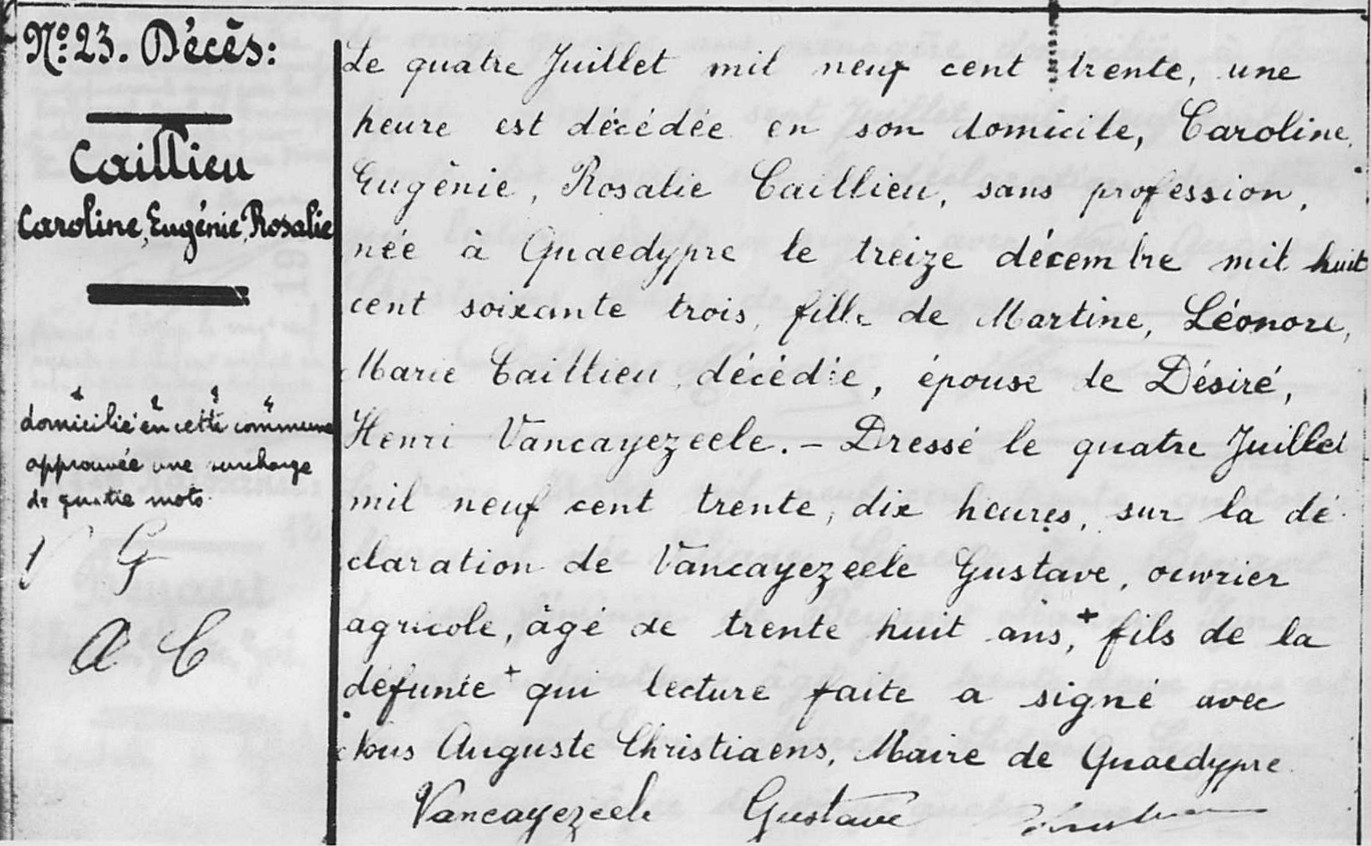 N° 23. Décès:
Caillieu
Caroline, Eugénie, Rosalie
domicilié en cette commune
approuvée une surcharge
de quatre mots
V G
A C
Le quatre Juillet mil neuf cent trente, une
heure est décédée en son domicile, Caroline,
Eugénie, Rosalie Caillieu, sans profession,
née à Quaedypre le treize décembre mil huit
cent soixante trois, fille de Martine, Léonore,
Marie Caillieu, décédée, épouse de Désiré,
Henri Vancayezeele. – Dressé le quatre Juillet
mil neuf cent trente, dix heures, sur la dé
claration de Vancayezeele Gustave, ouvrier
agricole, âgé de trente huit ans, + fils de la
défunte + qui lecture faite a signé avec
Nous Auguste Christiaens, Maire de Quaedypre.
Vancayezeele Gustave